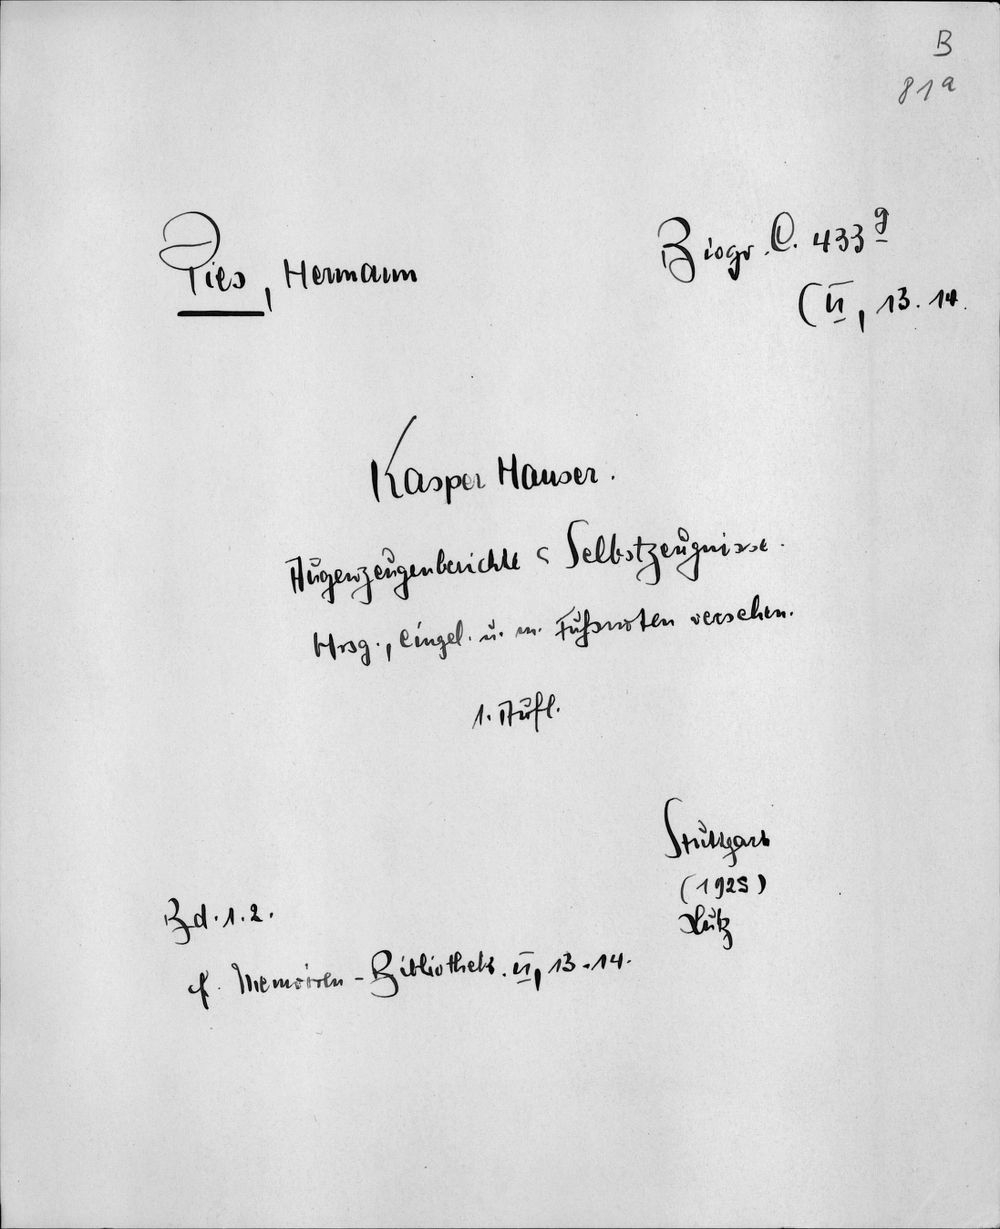 B
81a
Pies, Hermann
Biogr. C. 433 g
(II, 13. 14.
Kasper Hauser.
Augenzeugenberichte u Selbstzeugnisse.
Hrsg., eingel. u. m. Fußnoten versehen.
1. Aufl.
Stuttgart
(1925)
Lutz
Bd. 1. 2.
cf. Memoiren-Bibliothek. II, 13-14.